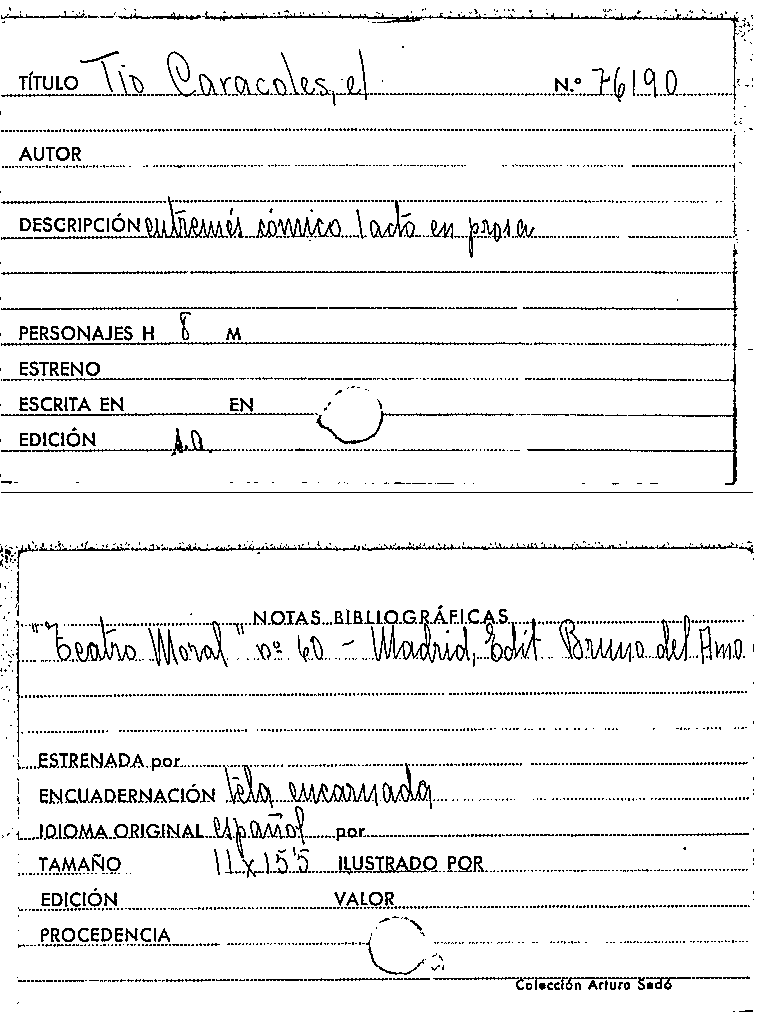 TÍTULO Tio Caracoles, el N.º 76190
AUTOR
DESCRIPCIÓN entremés cómico 1 acto en prosa
PERSONAJES H 8 M
ESTRENO
ESCRITA EN EN
EDICIÓN s.a.
NOTAS BIBLIOGRÁFICAS
"Teatro Moral" nº 60 - Madrid, Edit Bruno del Amo
ESTRENADA por
ENCUADERNACIÓN tela encarnada
IDIOMA ORIGINAL español por
TAMAÑO 11x15'5 ILUSTRADO POR
EDICIÓN VALOR
PROCEDENCIA
Colección Arturo Sedó